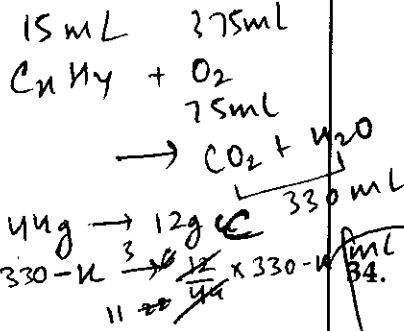 15 mL 375ml
CxHy + O2
75ml
→ CO2 + H2O
330 ml
44g → 12g C
330-x 3 → 6 12/44 × 330-x
11 22
ml
34.